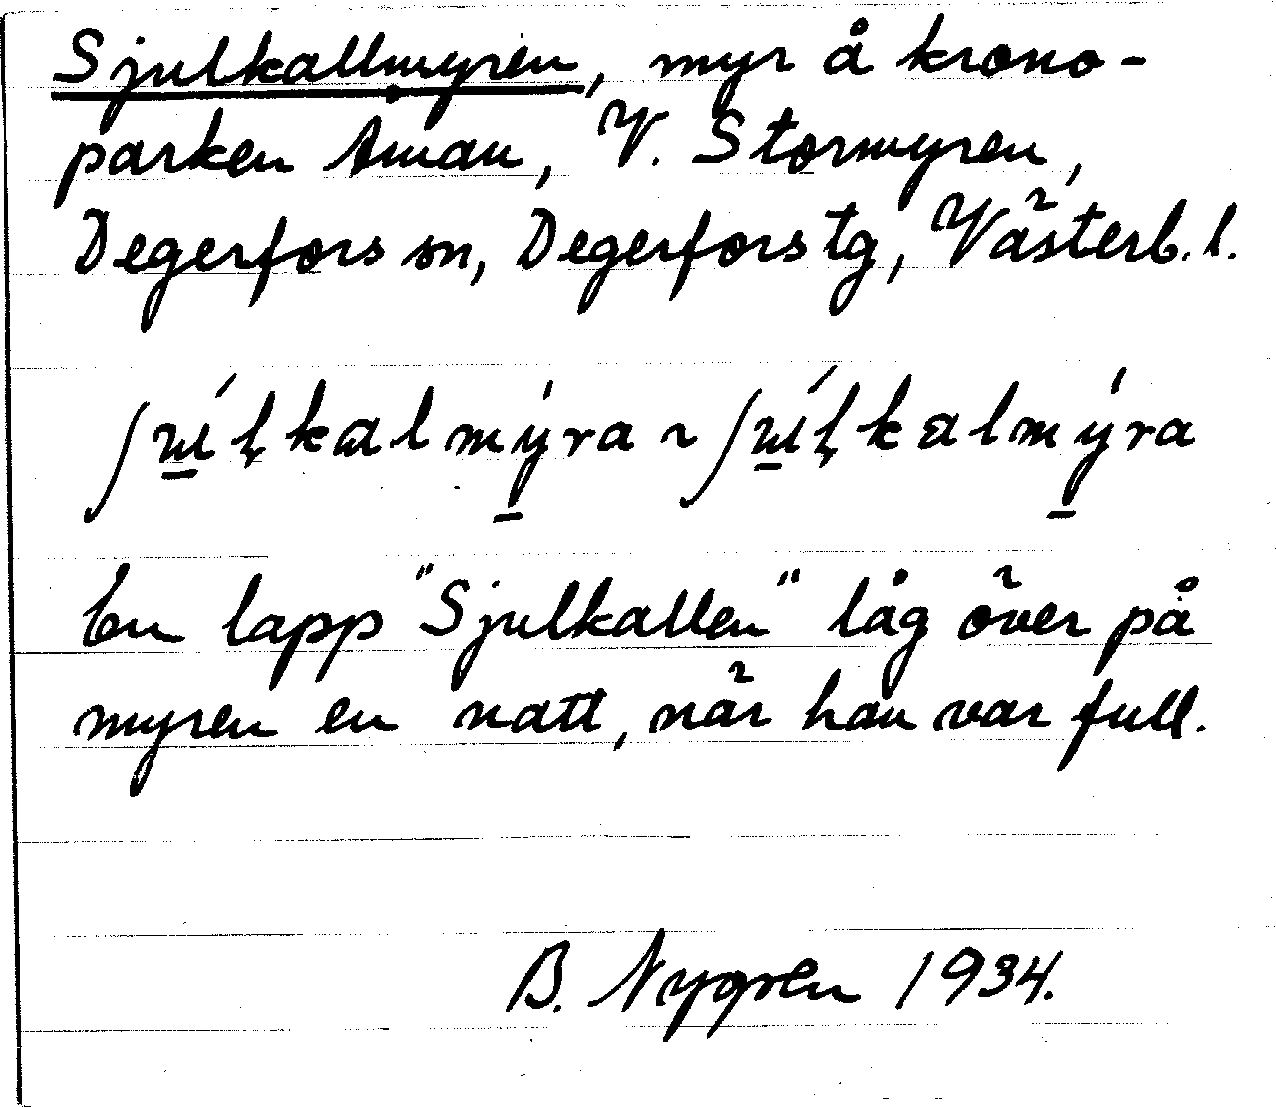 Sjulkallmyren, myr å krono-
parken Åman, V. Stormyren,
Degerfors sn, Degerfors tg, Västerb. l.
ʃɯ́l̡kalmýra ~ ʃɯ́l̡kalmýra
En lapp "Sjulkallen" låg över på
myren en natt, när han var full.
B. Nygren 1934.